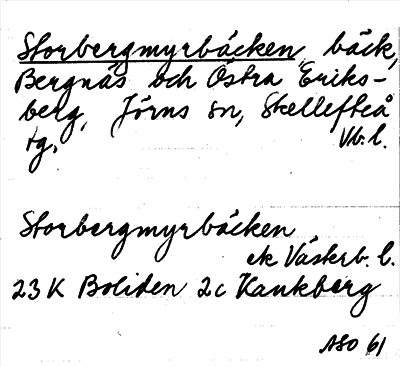 Storbergmyrbäcken, bäck,
Bergnäs och Östra Eriks-
berg, Jörns sn, Skellefteå
tg, Vb. l.
Storbergmyrbäcken
ek Västerb. l.
23 K Boliden 2c Kankberg
ASO 61